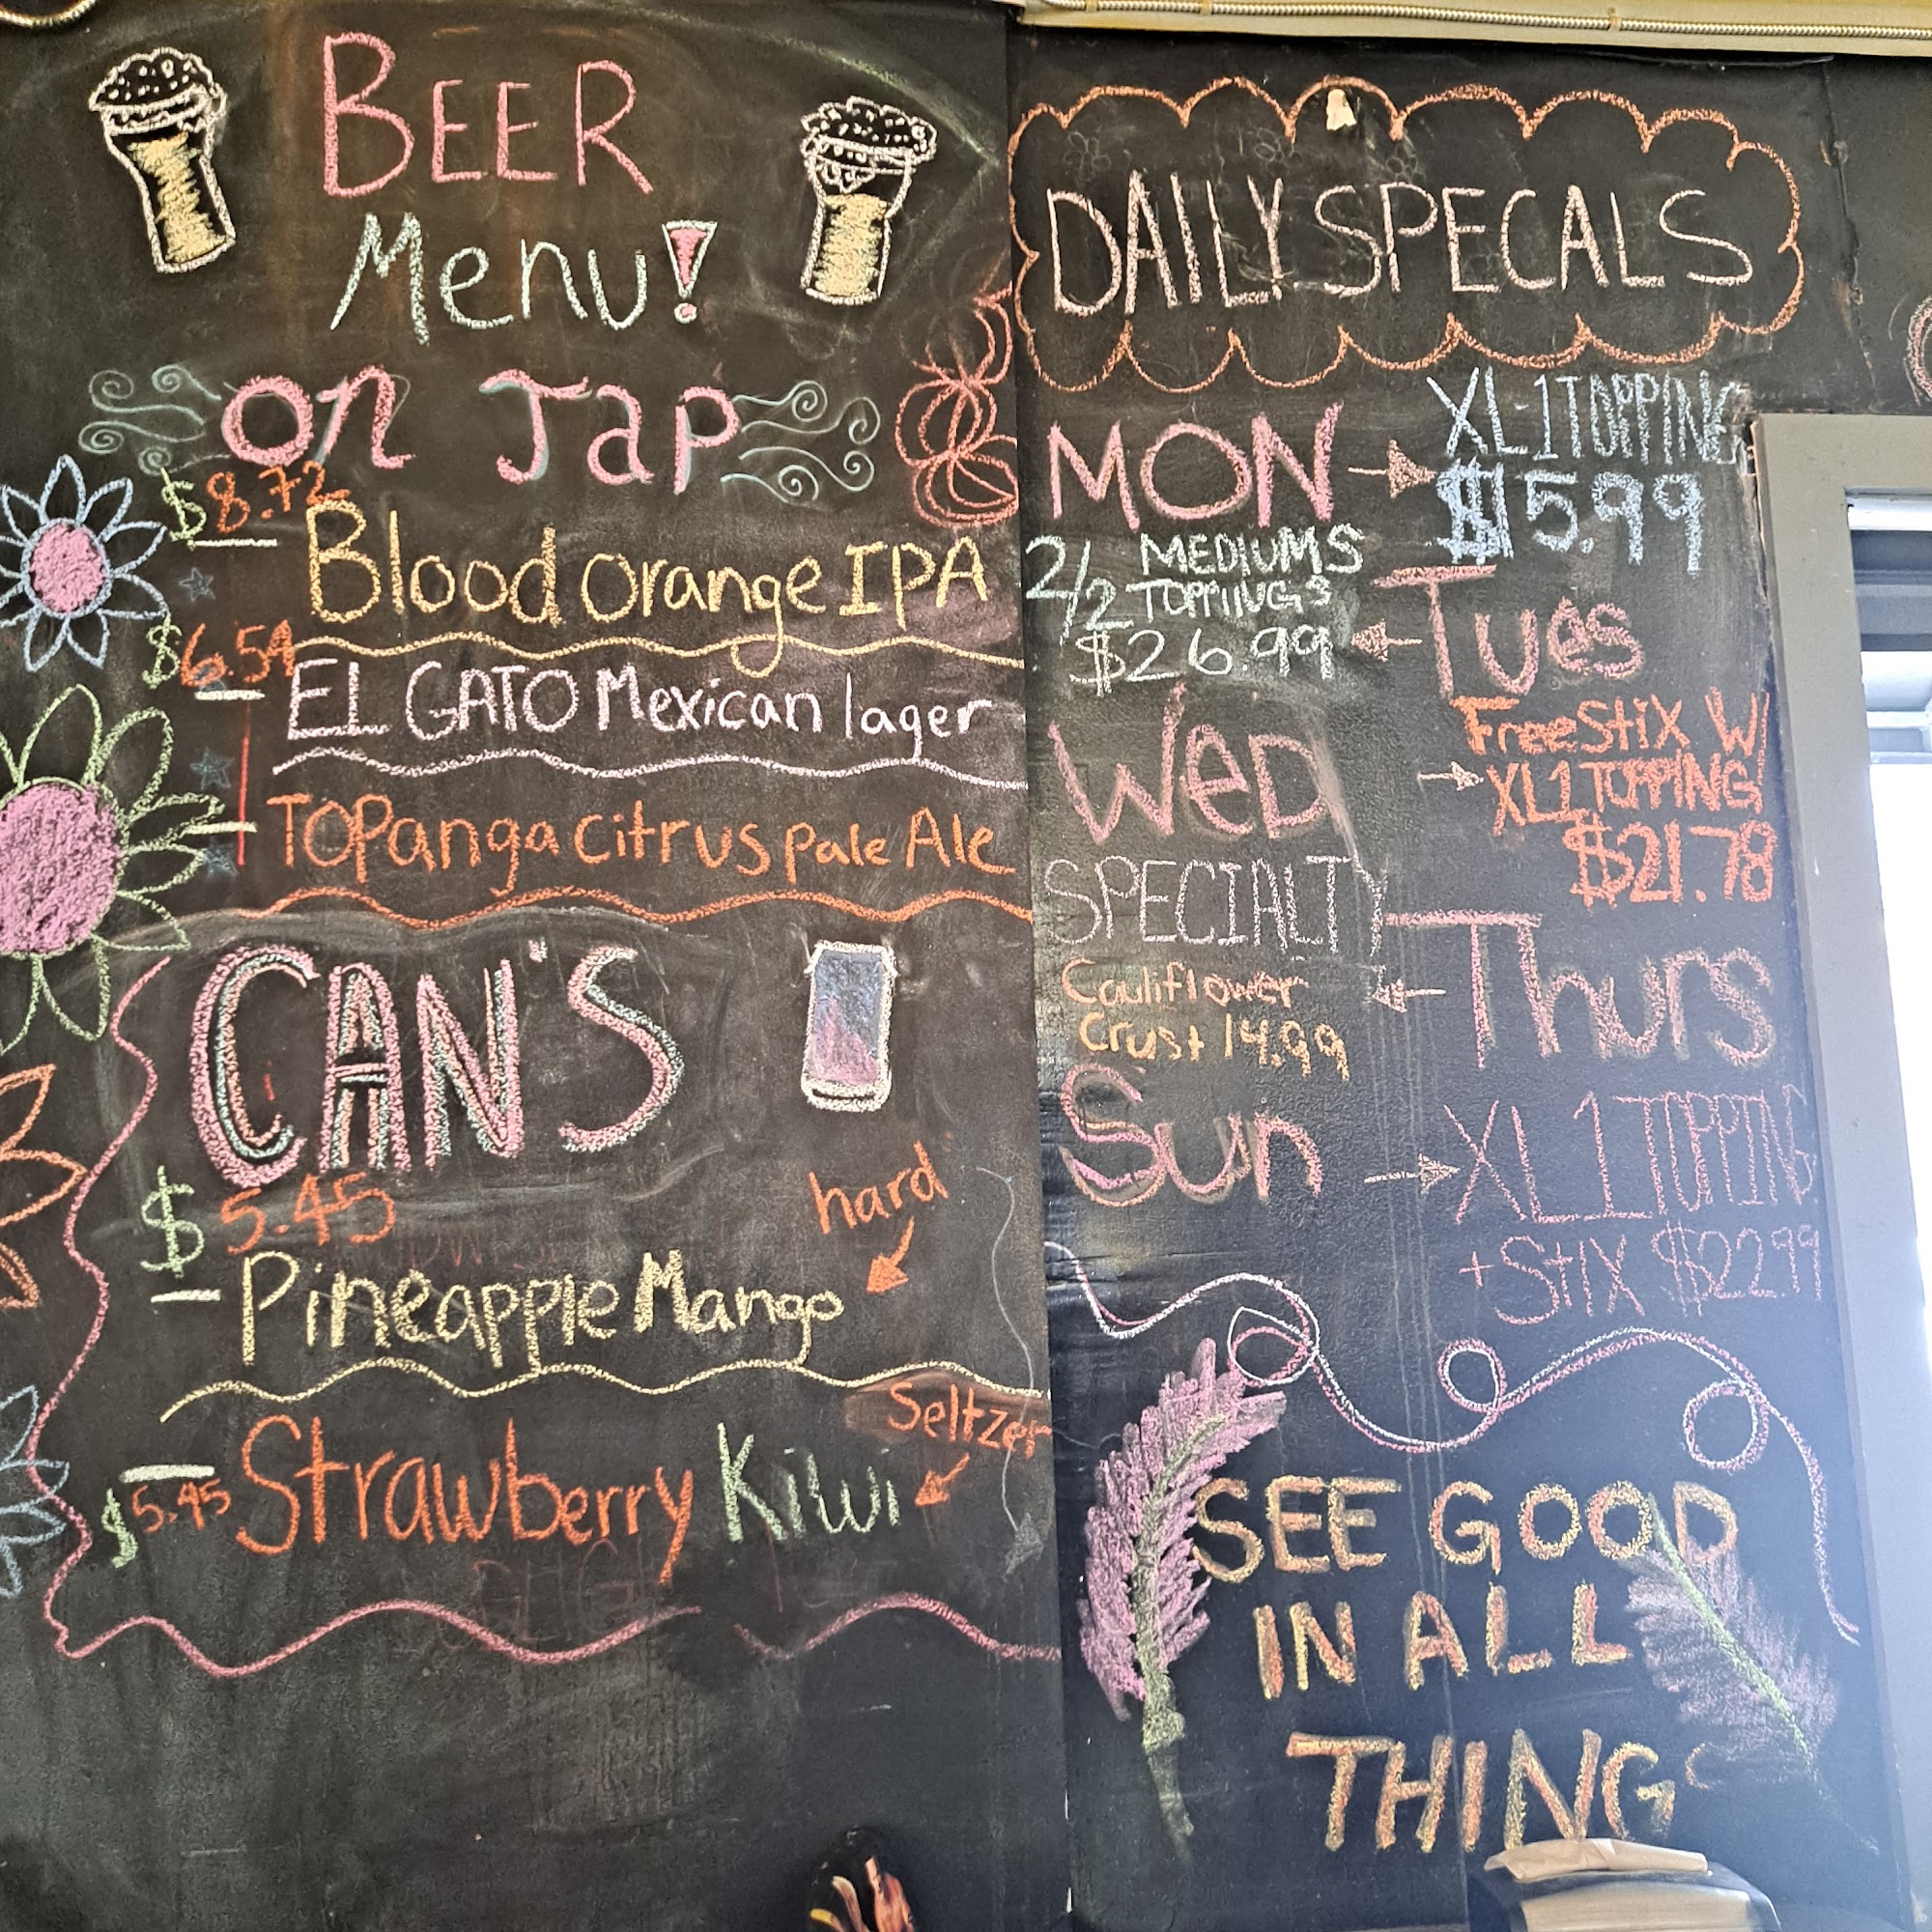 BEER
Menu!
on Tap
$8.72
Blood orange IPA
$6.54
EL GATO Mexican lager
TOPanga citrus pale Ale
CAN'S
$5.45
hard
Pineapple Mango
Seltzer
$5.45 Strawberry Kiwi
DAILY SPECALS
MON
XL-1 TOPPING
$15.99
Tues
2/2 MEDIUMS
TOPPINGS
$26.99
Wed
Free Stix W/
XL 1 TOPPING
$21.78
Thurs
SPECIALTY
Cauliflower
Crust 14.99
Sun
XL 1 TOPPING
+ Stix $22.99
SEE GOOD
IN ALL
THING